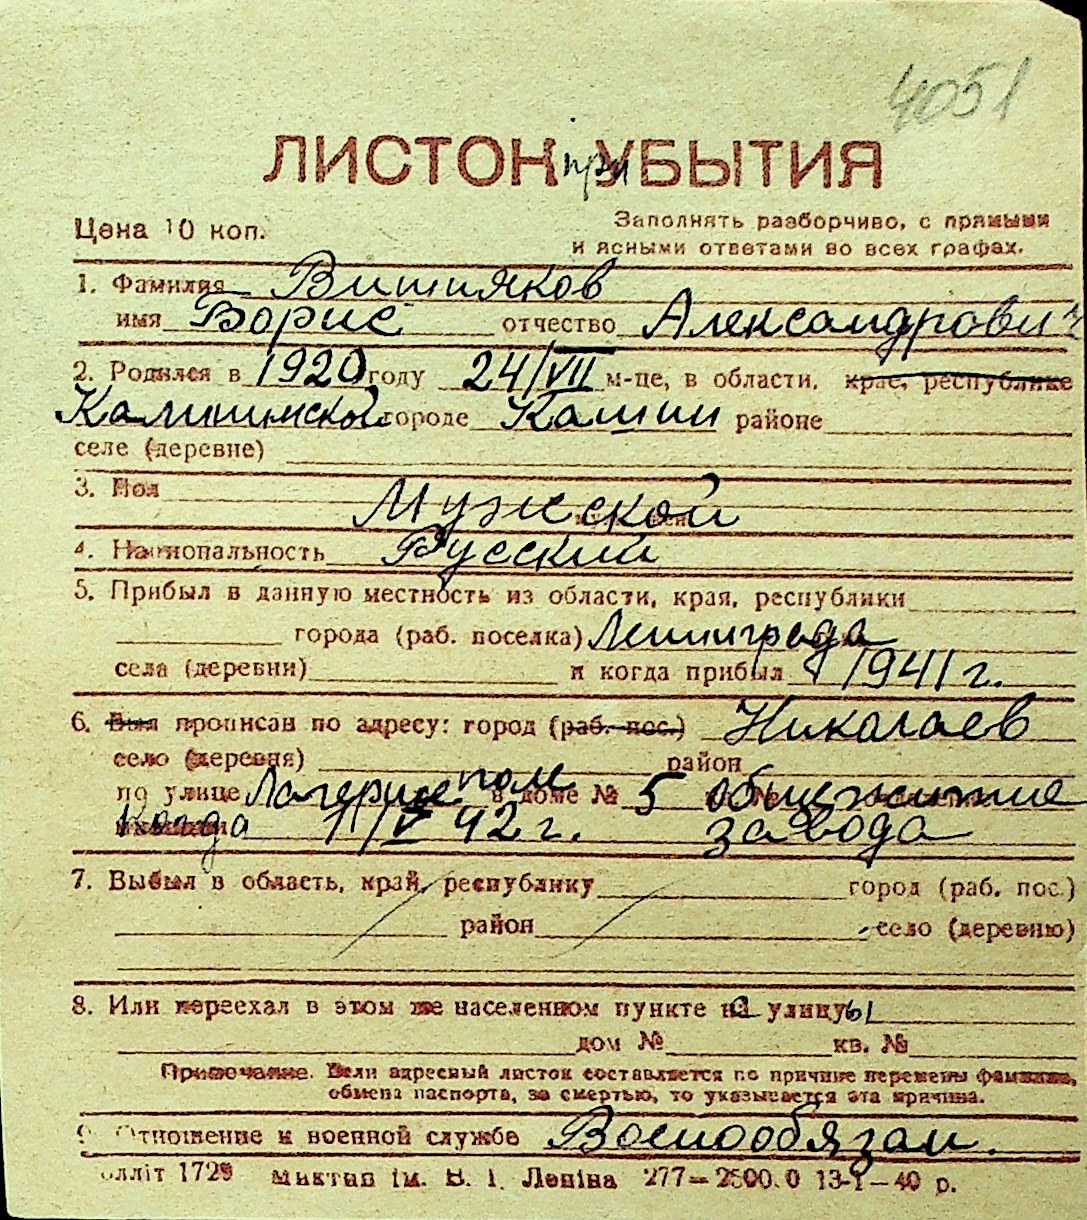 4051
ЛИСТОК при УБЫТИЯ
Цена 10 коп.
Заполнять разборчиво, с прямыми
и ясными ответами во всех графах.
1. Фамилия Вишняков
имя Борис отчество Александрович
2. Родился в 1920 году 24/VII м-це, в области, крае, республике
Калининской городе Кашин районе
селе (деревне)
3. Пол
Мужской
4. Национальность Русский
5. Прибыл в данную местность из области, края, республики
города (раб. поселка) Ленинграда
села (деревни) и когда прибыл 1941 г.
6. Был прописан по адресу: город (раб. пос.) Николаев
село (деревня) район
по улице Лагерное поле в доме № 5 общежитие
Когда 11/V 42 г. завода
7. Выбыл в область, край, республику город (раб. пос.)
район село (деревню)
8. Или переехал в этом же населенном пункте с улицы
дом № кв. №
Примечание. Если адресный листок составляется по причине перемены фамилии,
обмена паспорта, за смертью, то указывается эта причина.
9. Отношение к военной службе Военнообязан.
блліт 1729 Миктип ім. В. І. Леніна 277—2500.0 13-I—40 р.